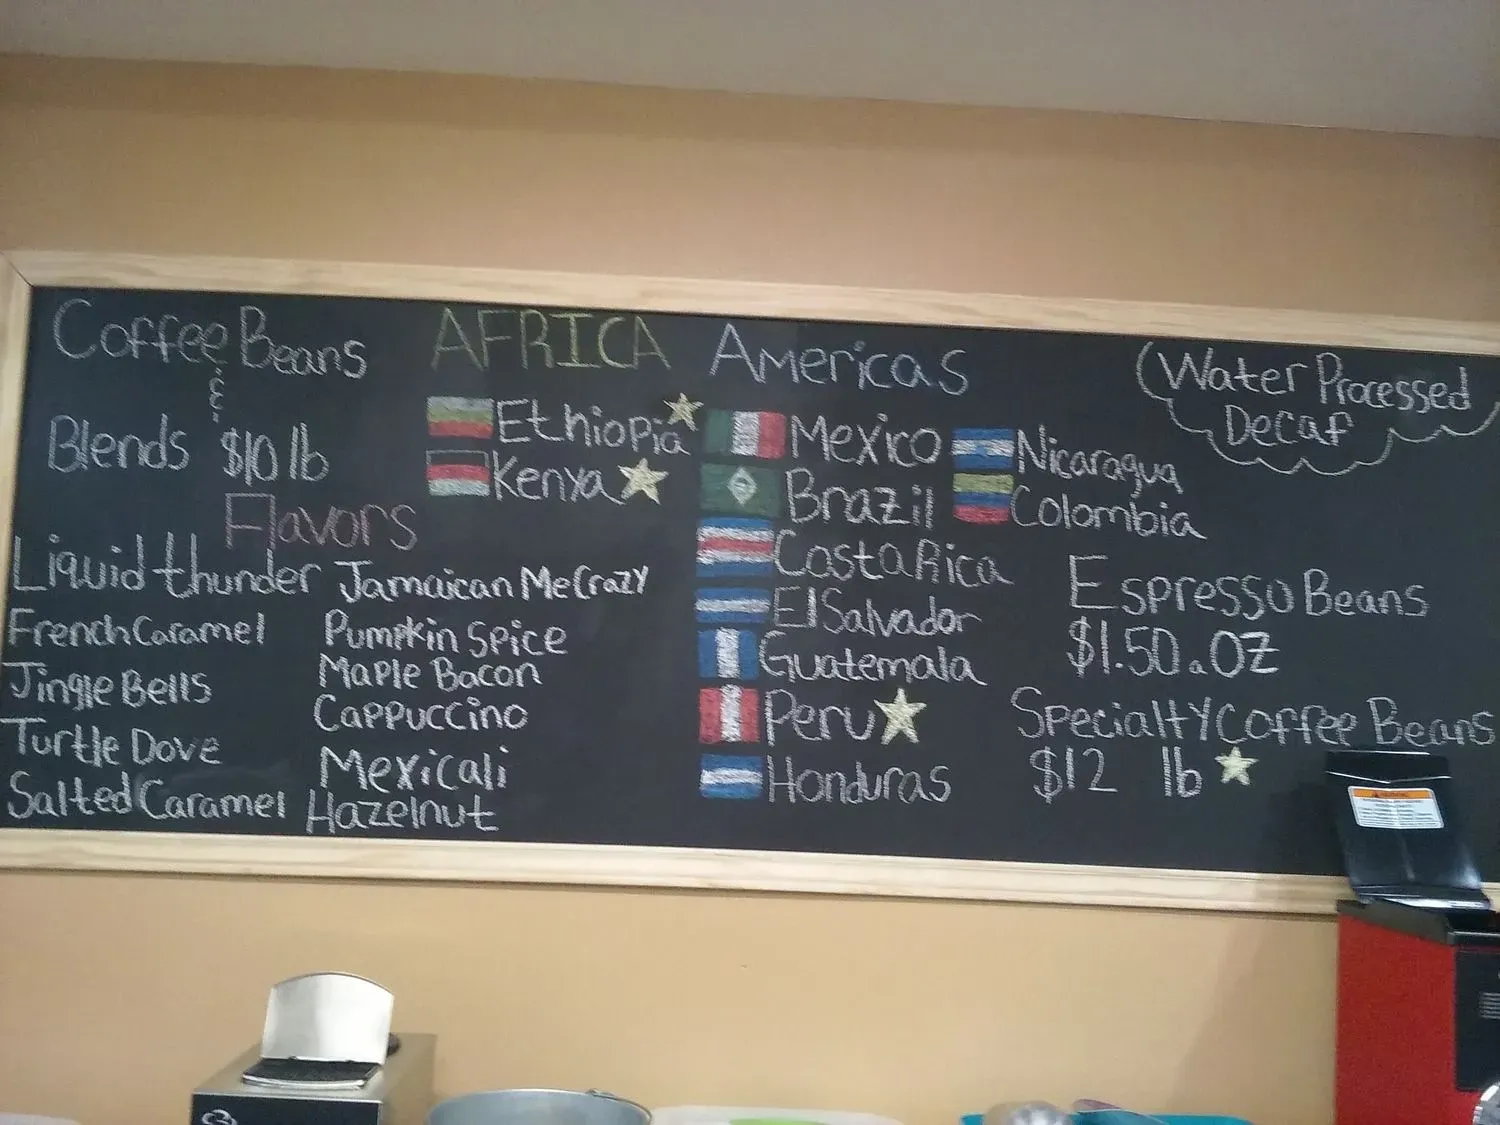 Coffee Beans
&
Blends $10 lb
Flavors
Liquid thunder
French Caramel
Jingle Bells
Turtle Dove
Salted Caramel
Jamaican Me Crazy
Pumpkin Spice
Maple Bacon
Cappuccino
Mexicali
Hazelnut
AFRICA
Ethiopia
Kenya
Americas
Mexico
Brazil
Costa Rica
El Salvador
Guatemala
Peru
Honduras
Nicaragua
Colombia
(Water Processed
Decaf
Espresso Beans
$1.50 a oz
Specialty Coffee Beans
$12 lb